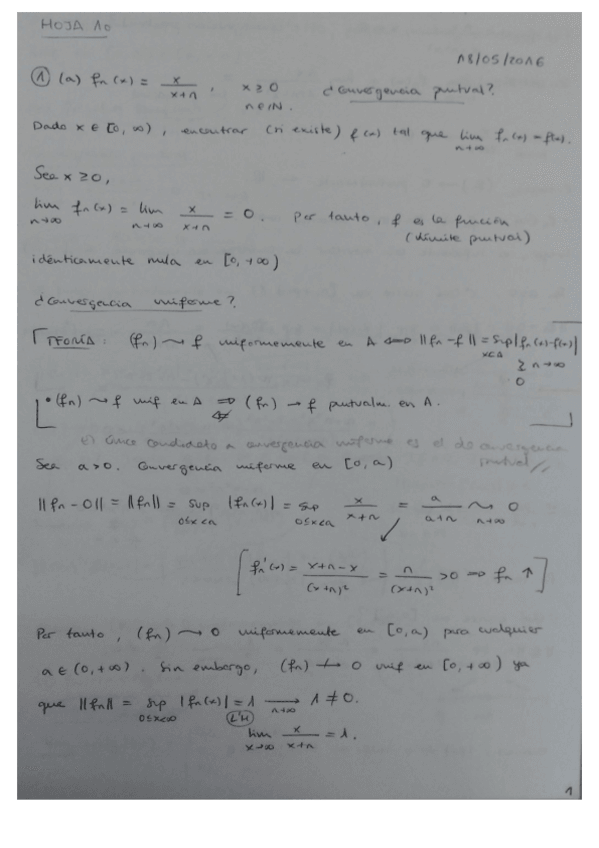 HOJA 10
18/05/2016
① (a) fn(x) = x/(x+n), x ≥ 0 n ∈ ℕ. ¿Convergencia puntual?
Dado x ∈ [0, ∞), encontrar (si existe) f(x) tal que lim n→∞ fn(x) = f(x).
Sea x ≥ 0,
lim n→∞ fn(x) = lim n→∞ x/(x+n) = 0. Por tanto, f es la función
(límite puntual)
idénticamente nula en [0, +∞)
¿Convergencia uniforme?
TEORÍA: (fn) → f uniformemente en A ⟺ ||fn-f|| = sup x∈A |fn(x)-f(x)|
↓ n→∞
0
• (fn) → f unif en A ⇒ ⇍ (fn) → f puntualm. en A.
Único candidato a convergencia uniforme es el de convergencia
puntual
Sea a>0. Convergencia uniforme en [0, a)
||fn - 0|| = ||fn|| = sup 0≤x<a |fn(x)| = sup 0≤x<a x/(x+n) = a/(a+n) → n→∞ 0
[fn'(x) = (x+n-x)/(x+n)² = n/(x+n)² > 0 ⇒ fn ↑]
Por tanto, (fn) → 0 uniformemente en [0, a) para cualquier
a ∈ (0, +∞). Sin embargo, (fn) ↛ 0 unif en [0, +∞) ya
que ||fn|| = sup 0≤x<∞ |fn(x)| = 1 → n→∞ 1 ≠ 0.
(L'H)
lim x→∞ x/(x+n) = 1.
1